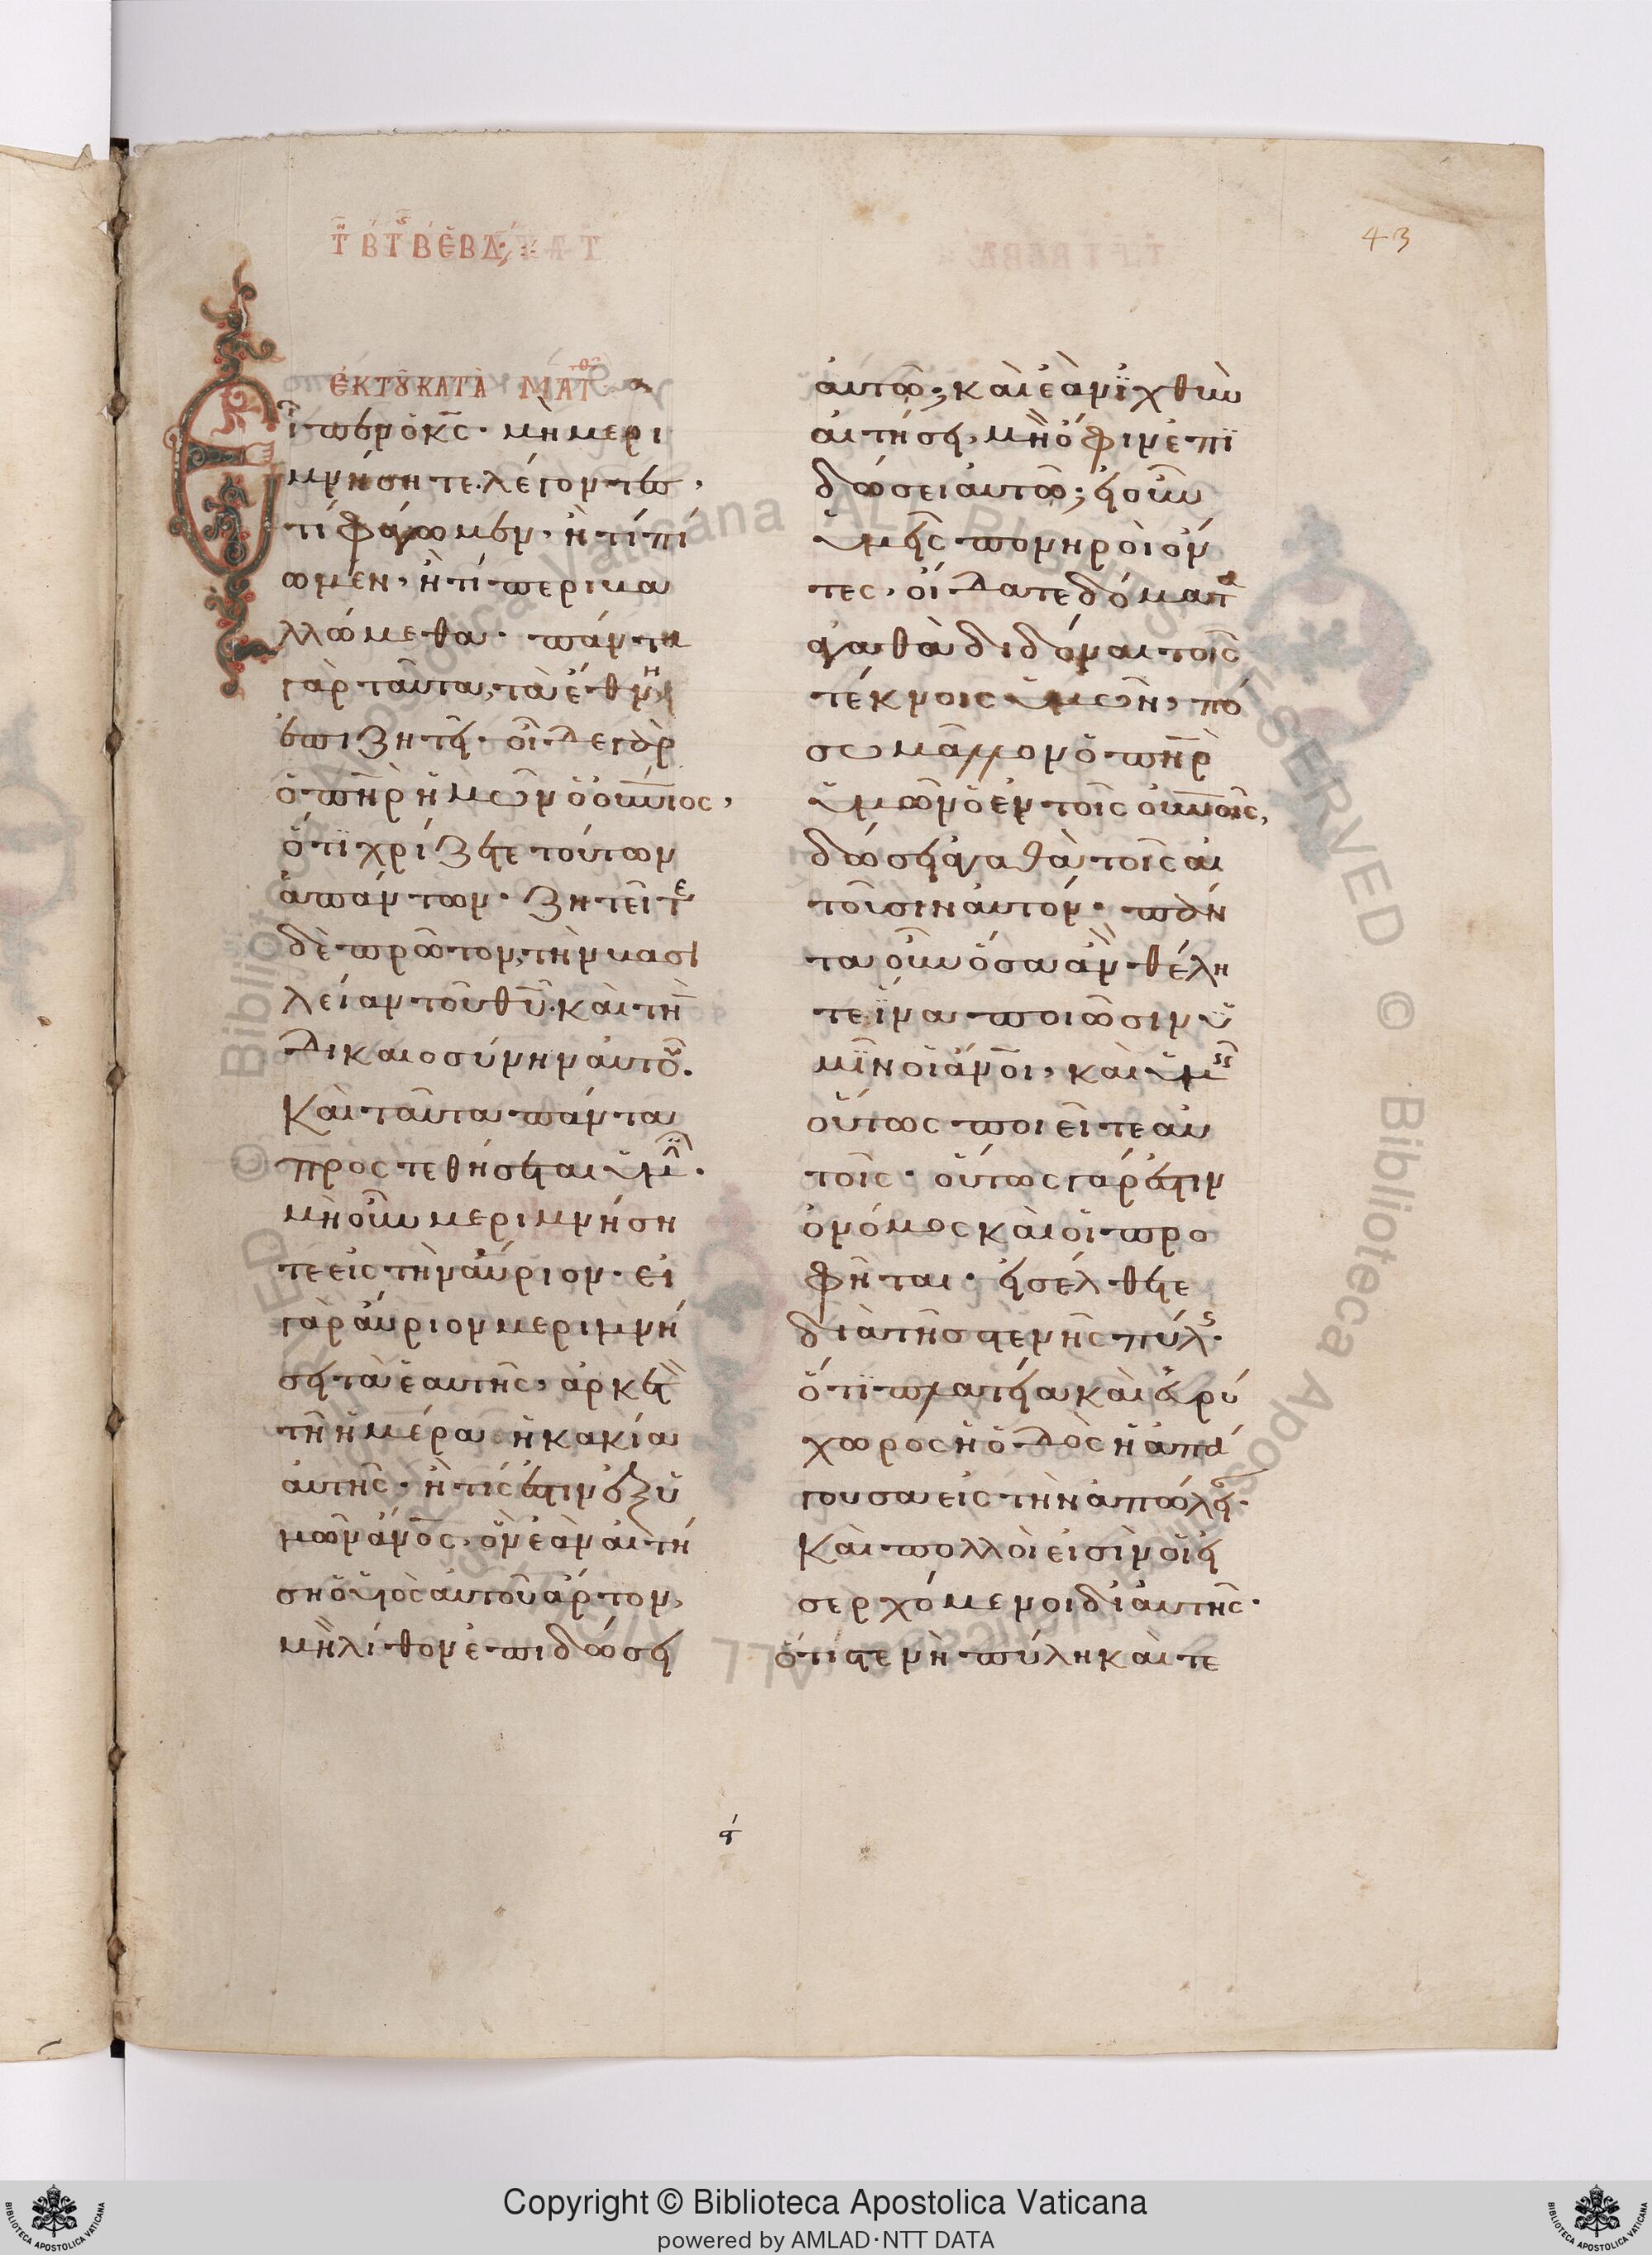 43
Τῇ Β τῆς Β ἑβδ
ἐκ τοῦ κατὰ Ματθ
Εἶπεν ὁ κς· μὴ μερι
μνήσητε λέγοντες,
τί φάγωμεν· ἢ τί πί
ωμεν, ἢ τί περιβα
λλώμεθα· πάντα
γὰρ ταῦτα, τὰ ἔθνη
ἐπιζητεῖ· οἶδεν γὰρ
ὁ πηρ ἡμῶν ὁ ουνιος,
ὅτι χρίζετε τούτων
ἁπάντων· ζητεῖτε
δὲ πρῶτον, τὴν βασι
λείαν τοῦ θυ· καὶ τὴν
δικαιοσύνην αὐτοῦ.
Καὶ ταῦτα πάντα
προστεθήσεται ὑμῖν·
μὴ οὖν μεριμνήση
τε εἰς τὴν αὔριον· εἰ
γὰρ αὔριον μεριμνή
σει τὰ ἑαυτῆς, ἀρκετὸν
τῇ ἡμέρα ἡ κακία
αὐτῆς· ἢ τίς ἐστιν ἐξ ὑ
μῶν ανος, ὃν ἐὰν αἰτή
ση ὁ υἱὸς αὐτοῦ ἄρτον,
μὴ λίθον ἐπιδώσει
αὐτῶ; καὶ ἐὰν ἰχθὺν
αἰτήσει, μὴ ὄφιν ἐπι
δώσει αὐτῶ; εἰ οὖν
ὑμεῖς πονηροὶ ὄν
τες, οἴδατε δόματα
ἀγαθὰ διδόναι τοῖς
τέκνοις ὑμῶν, πό
σω μᾶλλον ὁ πηρ
ὑμῶν ὁ ἐν τοῖς ουνοις,
δώσει ἀγαθὰ τοῖς αἰ
τοῦσιν αὐτόν· πάν
τα οὖν ὅσα ἂν θέλη
τε ἵνα ποιῶσιν ὑ
μῖν οἱ ανοι, καὶ ὑμεῖς
οὕτως ποιεῖτε αὐ
τοῖς· οὕτως γάρ ἐστιν
ὁ νόμος καὶ οἱ προ
φῆται· εἰσέλθετε
διὰ τῆς στενῆς πύλης·
ὅτι πλατεῖα καὶ εὐρύ
χωρος ἡ ὁδὸς ἡ ἀπά
γουσα εἰς τὴν ἀπώλειαν·
Καὶ πολλοὶ εἰσὶν οἱ εἰ
σερχόμενοι δι αὐτῆς·
ὅτι στενὴ πύλη καὶ τε
Copyright © Biblioteca Apostolica Vaticana
powered by AMLAD·NTT DATA